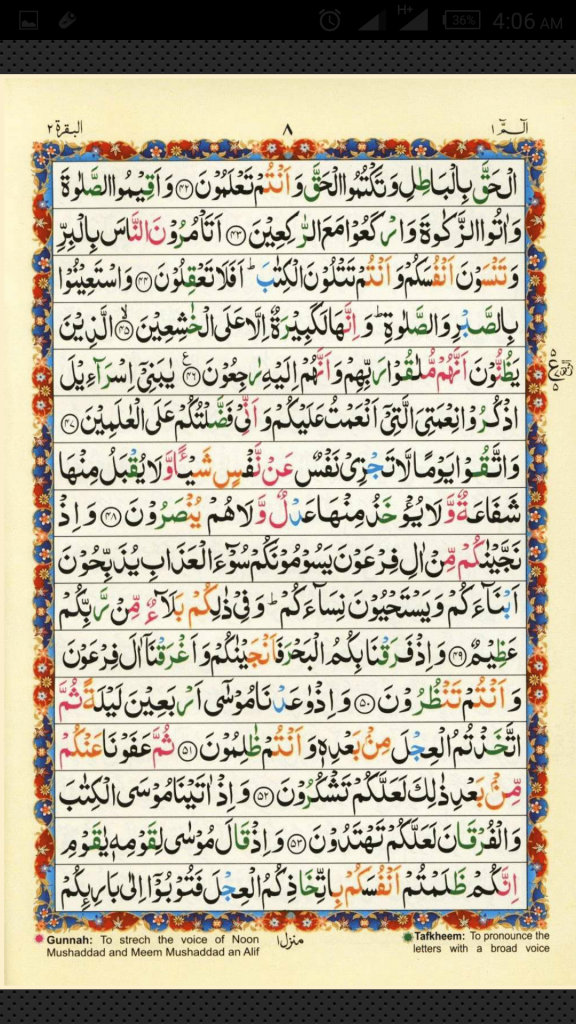 36% 4:06 AM
الٓـمّٓ ١ ٨ البقرة ٢
الْحَقَّ بِالْبَاطِلِ وَتَكْتُمُوا الْحَقَّ وَاَنْتُمْ تَعْلَمُوْنَ ﴿۴۲﴾ وَاَقِيْمُوا الصَّلٰوةَ
وَاٰتُوا الزَّكٰوةَ وَارْكَعُوْا مَعَ الرّٰكِعِيْنَ ﴿۴۳﴾ اَتَاْمُرُوْنَ النَّاسَ بِالْبِرِّ
وَتَنْسَوْنَ اَنْفُسَكُمْ وَاَنْتُمْ تَتْلُوْنَ الْكِتٰبَ ؕ اَفَلَا تَعْقِلُوْنَ ﴿۴۴﴾ وَاسْتَعِيْنُوْا
بِالصَّبْرِ وَالصَّلٰوةِ ؕ وَاِنَّهَا لَكَبِيْرَةٌ اِلَّا عَلَى الْخٰشِعِيْنَ ﴿۴۵﴾ۙ الَّذِيْنَ
يَظُنُّوْنَ اَنَّهُمْ مُّلٰقُوْا رَبِّهِمْ وَاَنَّهُمْ اِلَيْهِ رٰجِعُوْنَ ﴿۴۶﴾ ع يٰبَنِيْٓ اِسْرَآءِيْلَ
اذْكُرُوْا نِعْمَتِيَ الَّتِيْٓ اَنْعَمْتُ عَلَيْكُمْ وَاَنِّيْ فَضَّلْتُكُمْ عَلَى الْعٰلَمِيْنَ ﴿۴۷﴾
وَاتَّقُوْا يَوْمًا لَّا تَجْزِيْ نَفْسٌ عَنْ نَّفْسٍ شَيْـًٔا وَّلَا يُقْبَلُ مِنْهَا
شَفَاعَةٌ وَّلَا يُؤْخَذُ مِنْهَا عَدْلٌ وَّلَا هُمْ يُنْصَرُوْنَ ﴿۴۸﴾ وَاِذْ
نَجَّيْنٰكُمْ مِّنْ اٰلِ فِرْعَوْنَ يَسُوْمُوْنَكُمْ سُوْٓءَ الْعَذَابِ يُذَبِّحُوْنَ
اَبْنَآءَكُمْ وَيَسْتَحْيُوْنَ نِسَآءَكُمْ ؕ وَفِيْ ذٰلِكُمْ بَلَآءٌ مِّنْ رَّبِّكُمْ
عَظِيْمٌ ﴿۴۹﴾ وَاِذْ فَرَقْنَا بِكُمُ الْبَحْرَ فَاَنْجَيْنٰكُمْ وَاَغْرَقْنَآ اٰلَ فِرْعَوْنَ
وَاَنْتُمْ تَنْظُرُوْنَ ﴿۵۰﴾ وَاِذْ وٰعَدْنَا مُوْسٰٓى اَرْبَعِيْنَ لَيْلَةً ثُمَّ
اتَّخَذْتُمُ الْعِجْلَ مِنْۢ بَعْدِهٖ وَاَنْتُمْ ظٰلِمُوْنَ ﴿۵۱﴾ ثُمَّ عَفَوْنَا عَنْكُمْ
مِّنْۢ بَعْدِ ذٰلِكَ لَعَلَّكُمْ تَشْكُرُوْنَ ﴿۵۲﴾ وَاِذْ اٰتَيْنَا مُوْسَى الْكِتٰبَ
وَالْفُرْقَانَ لَعَلَّكُمْ تَهْتَدُوْنَ ﴿۵۳﴾ وَاِذْ قَالَ مُوْسٰى لِقَوْمِهٖ يٰقَوْمِ
اِنَّكُمْ ظَلَمْتُمْ اَنْفُسَكُمْ بِاتِّخَاذِكُمُ الْعِجْلَ فَتُوْبُوْٓا اِلٰى بَارِئِكُمْ
منزل ١
Gunnah: To strech the voice of Noon
Mushaddad and Meem Mushaddad an Alif
Tafkheem: To pronounce the
letters with a broad voice